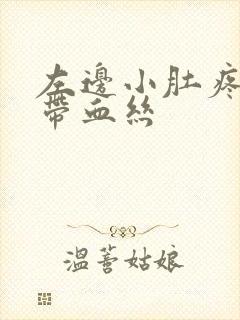 左邊小肚疼
帶血絲
溫蓉姑娘